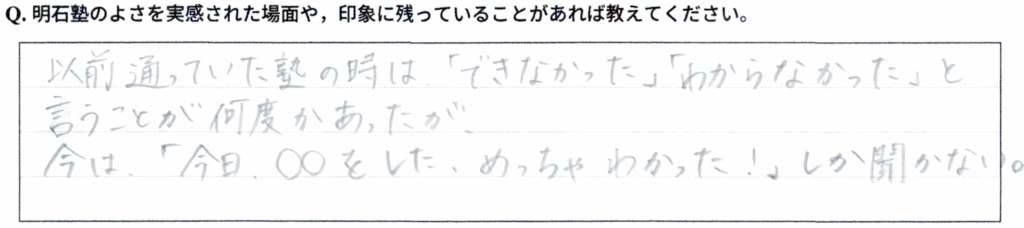 Q. 明石塾のよさを実感された場面や，印象に残っていることがあれば教えてください。
以前通っていた塾の時は、「できなかった」「わからなかった」と
言うことが何度かあったが、
今は、「今日、〇〇をした、めっちゃわかった！」しか聞かない。